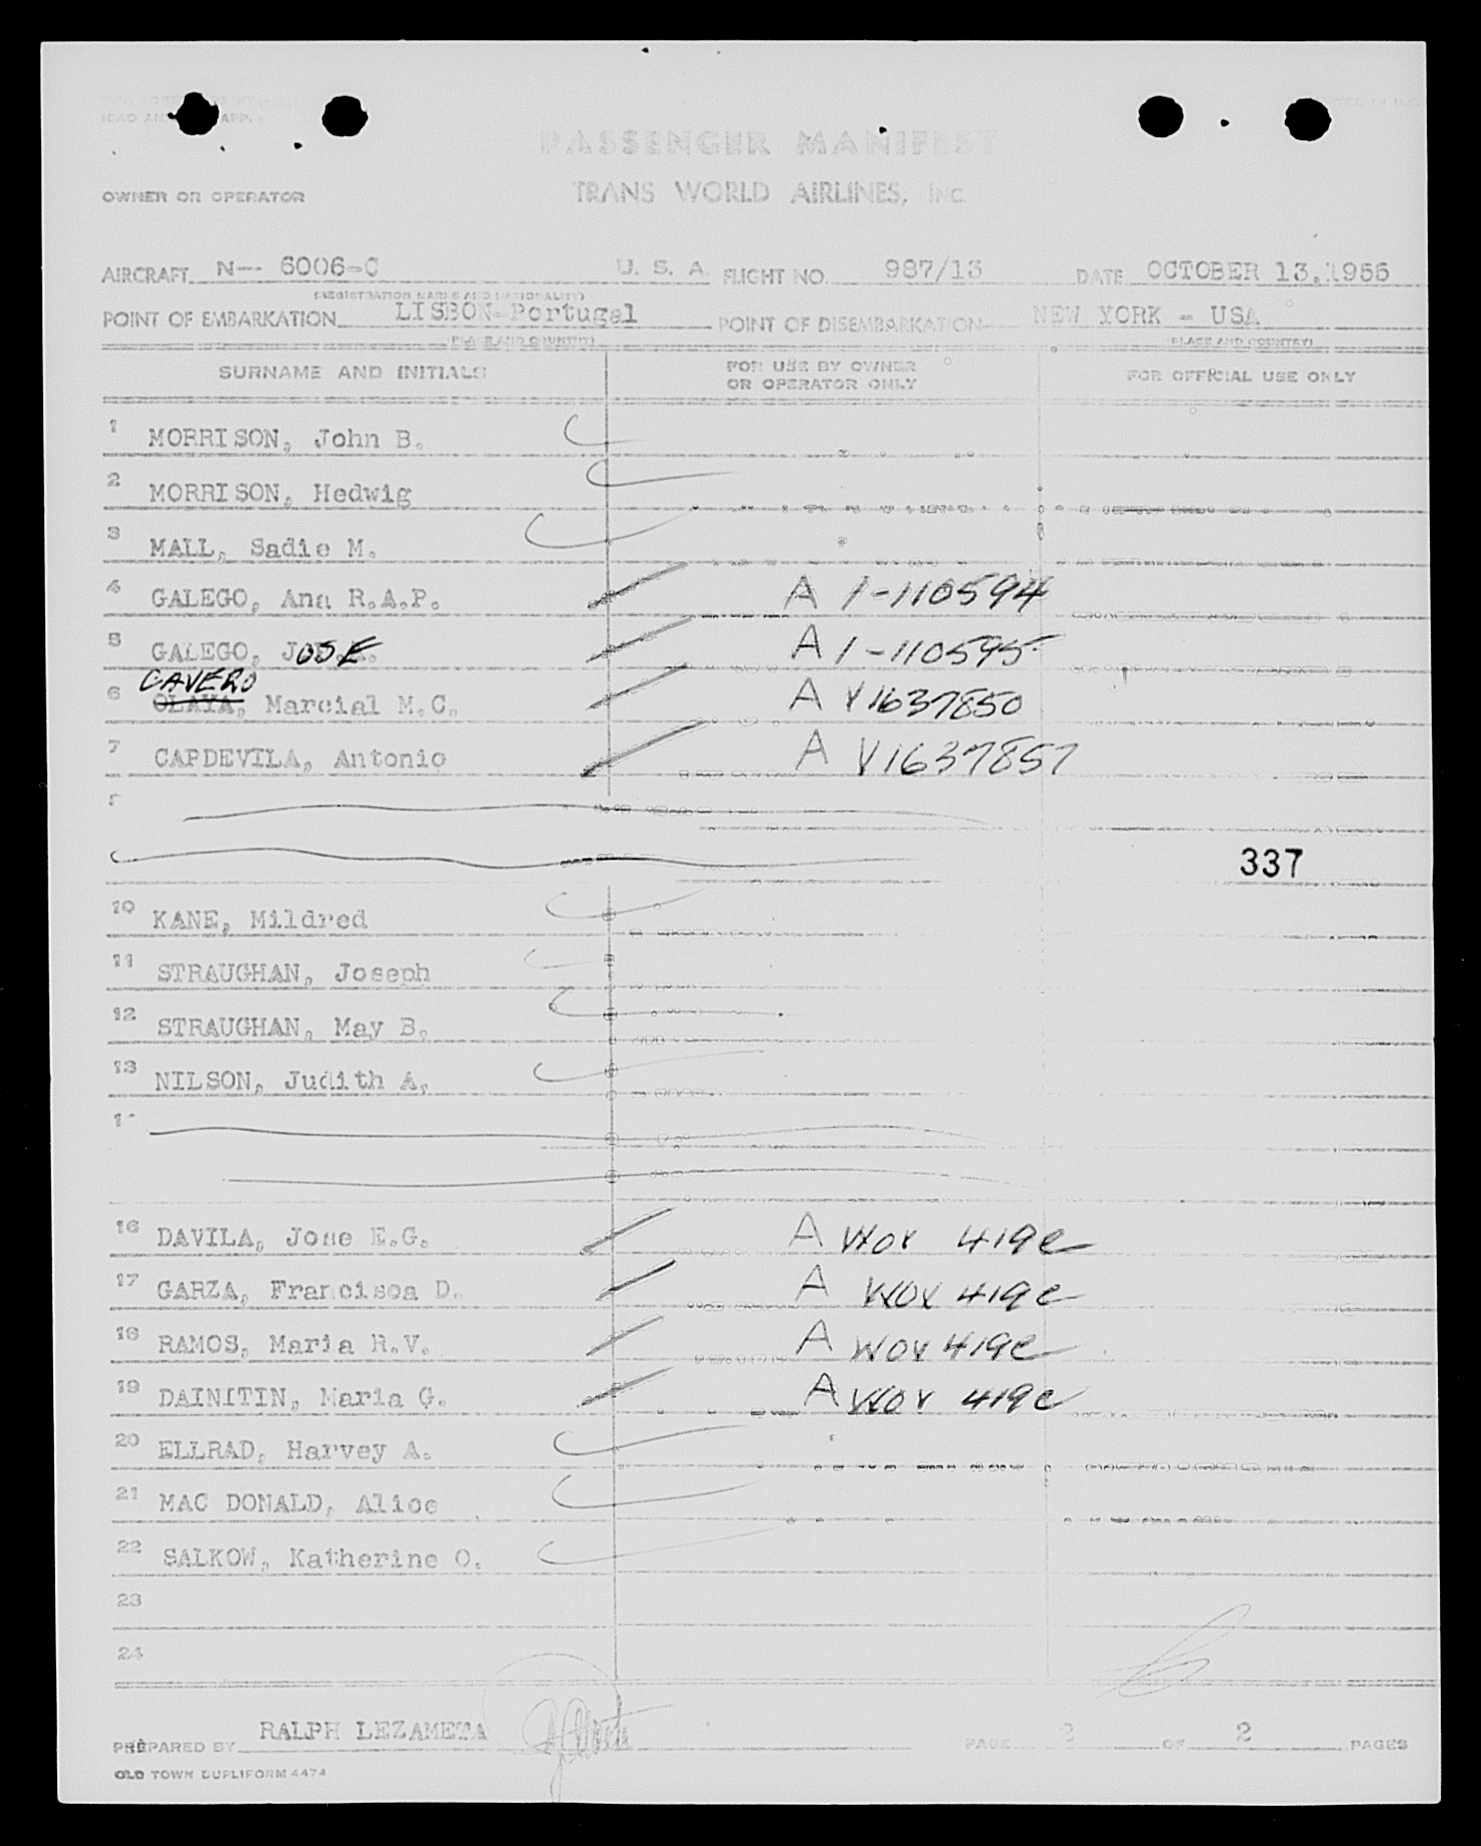 PASSENGER MANIFEST
OWNER OR OPERATOR TRANS WORLD AIRLINES, INC.
AIRCRAFT N-- 6006-C U. S. A. FLIGHT NO. 987/13 DATE OCTOBER 13,1956
(REGISTRATION MARKS AND NATIONALITY)
POINT OF EMBARKATION LISBON-Portugal POINT OF DISEMBARKATION NEW YORK - USA
(PLACE AND COUNTRY) (PLACE AND COUNTRY)
SURNAME AND INITIALS FOR USE BY OWNER OR OPERATOR ONLY FOR OFFICIAL USE ONLY
1 MORRISON, John B.
2 MORRISON, Hedwig
3 MALL, Sadie M.
4 GALEGO, Ana R.A.P. A 1-110594
5 GALEGO, JOSE A 1-110595
CAVERO
6 OLAYA, Marcial M.C. A V1637850
7 CAPDEVILA, Antonio A V1637857
337
10 KANE, Mildred
11 STRAUGHAN, Joseph
12 STRAUGHAN, May B.
13 NILSON, Judith A.
16 DAVILA, Jose E.G. A 419e
17 GARZA, Francisca D. A 419e
18 RAMOS, Maria R.V. A 419e
19 DAINITIN, Maria G. A 419e
20 ELLRAD, Harvey A.
21 MAC DONALD, Alice
22 SALKOW, Katherine O.
23
24
PREPARED BY RALPH LEZAMETA PAGE 2 OF 2 PAGES
OLD TOWN DUPLIFORM 4474